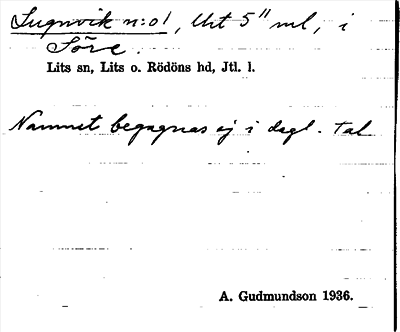 Lugnvik n:o 1, Urt 5" ml, i
Söre.
Lits sn, Lits o. Rödöns hd, Jtl. l.
Namnet begagnas ej i dagl. tal
A. Gudmundson 1936.